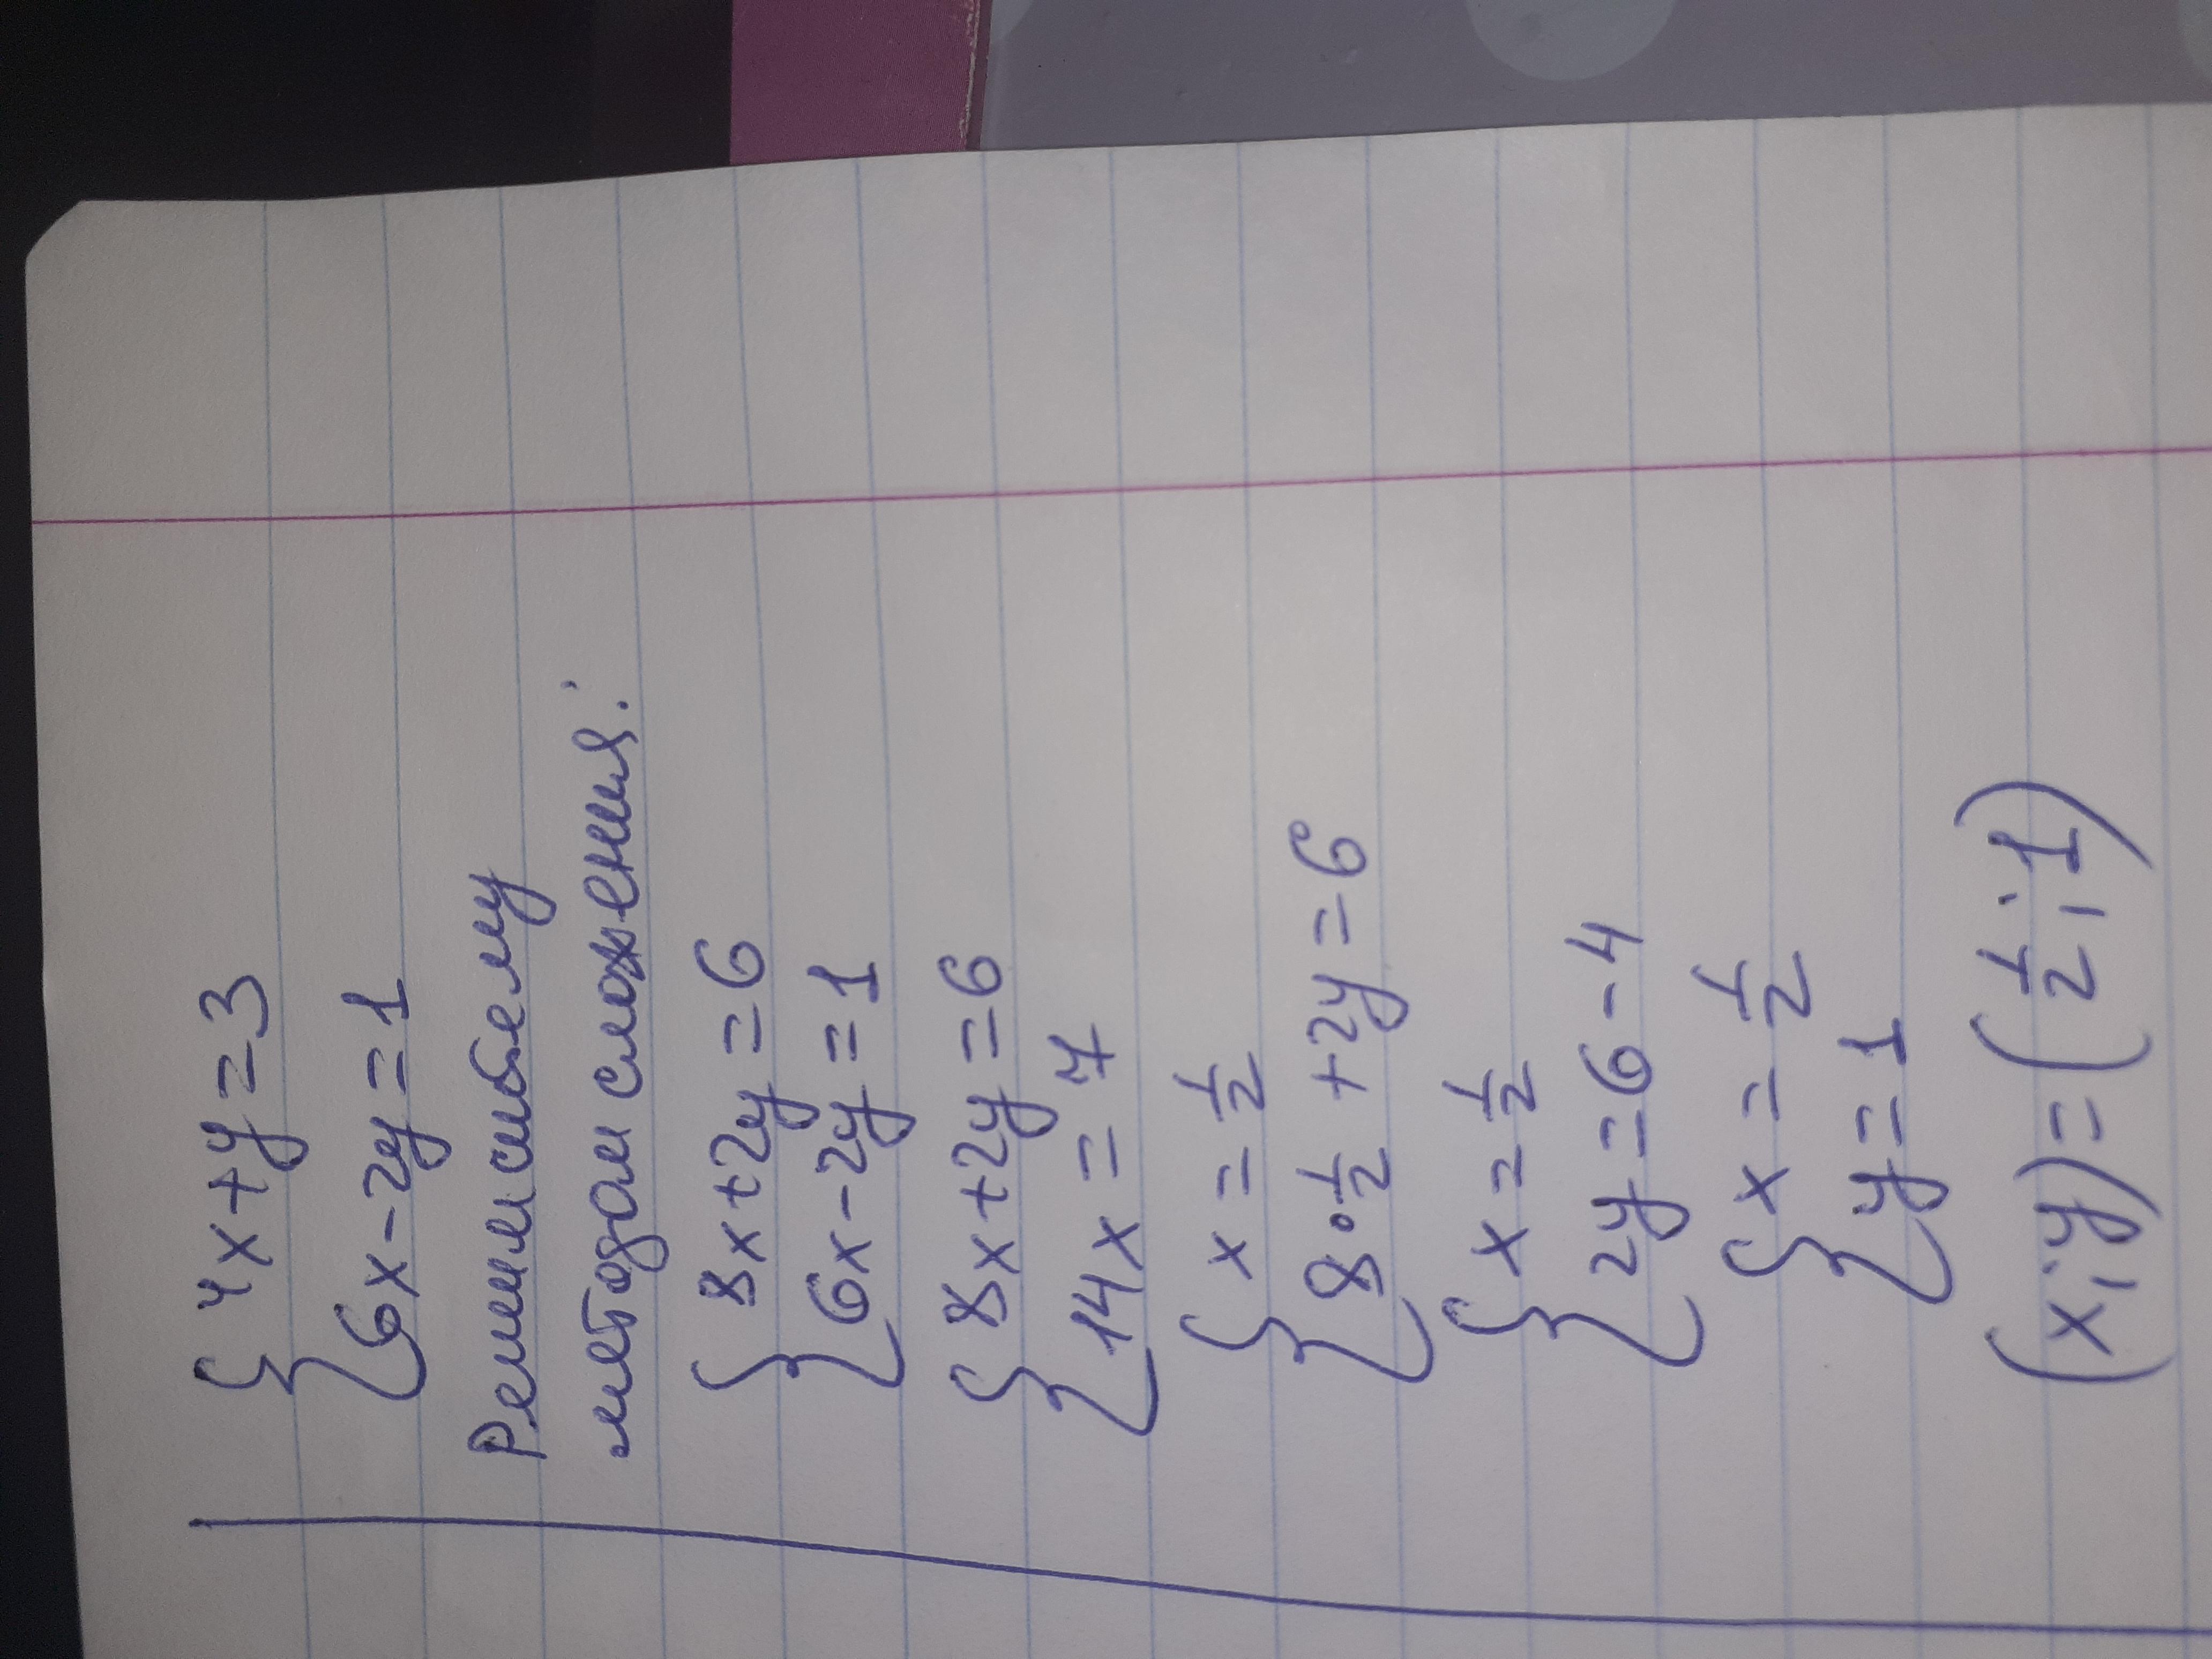 { 4x+y=3
{ 6x-2y=1
Решим систему
методом сложения:
{ 8x+2y=6
{ 6x-2y=1
{ 8x+2y=6
{ 14x=7
{ x=1/2
{ 8·1/2+2y=6
{ x=1/2
{ 2y=6-4
{ x=1/2
{ y=1
(x;y)=(1/2;1)